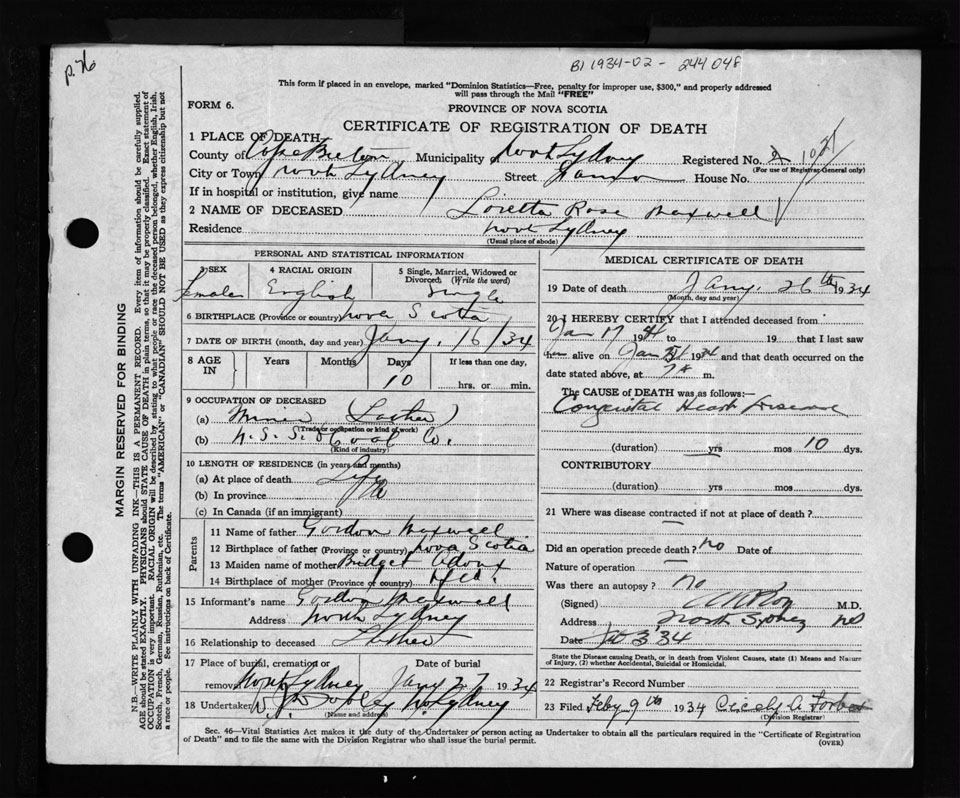 p. 76
B1 1934-02-244048
This form if placed in an envelope, marked "Dominion Statistics—Free, penalty for improper use, $300," and properly addressed
will pass through the Mail "FREE"
FORM 6.
PROVINCE OF NOVA SCOTIA
CERTIFICATE OF REGISTRATION OF DEATH
1 PLACE OF DEATH
County of Cape Breton Municipality North Sydney Registered No. 1021
(For use of Registrar General only)
City or Town North Sydney Street House No.
If in hospital or institution, give name
2 NAME OF DECEASED Loretta Rose Maxwell
Residence North Sydney
(Usual place of abode)
PERSONAL AND STATISTICAL INFORMATION
3 SEX Female
4 RACIAL ORIGIN English
5 Single, Married, Widowed or Divorced (Write the word) Single
6 BIRTHPLACE (Province or country) Nova Scotia
7 DATE OF BIRTH (month, day and year) Jany. 16/34
8 AGE IN Years Months Days 10 If less than one day, hrs. or min.
9 OCCUPATION OF DECEASED
(a) Miner (Father)
(Trade occupation or kind of work)
(b) N. S. S. & Coal Co.
(Kind of industry)
10 LENGTH OF RESIDENCE (in years and months)
(a) At place of death Life
(b) In province
(c) In Canada (if an immigrant)
Parents
11 Name of father Gordon Maxwell
12 Birthplace of father (Province or country) Nova Scotia
13 Maiden name of mother Bridget
14 Birthplace of mother (Province or country) Nfld.
15 Informant's name Gordon Maxwell
Address North Sydney
16 Relationship to deceased Father
17 Place of burial, cremation or removal North Sydney Date of burial Jany 27 1934
18 Undertaker No. Sydney
(Name and address)
MEDICAL CERTIFICATE OF DEATH
19 Date of death Jany. 26th 1934
(Month, day and year)
20 I HEREBY CERTIFY that I attended deceased from
Jan 17 1934 to 19 that I last saw
her alive on Jan 1934 and that death occurred on the
date stated above, at m.
The CAUSE of DEATH was as follows:—
Congenital Heart Disease
(duration) yrs mos 10 dys.
CONTRIBUTORY
(duration) yrs mos dys.
21 Where was disease contracted if not at place of death?
Did an operation precede death? No Date of
Nature of operation
Was there an autopsy? No
(Signed) M.D.
Address North Sydney NS
Date Feb 3 34
State the Disease causing Death, or in death from Violent Causes, state (1) Means and Nature
of Injury, (2) whether Accidental, Suicidal or Homicidal.
22 Registrar's Record Number
23 Filed Feby 9th 1934 Cicely A Forbes
(Division Registrar)
Sec. 46—Vital Statistics Act makes it the duty of the Undertaker or person acting as Undertaker to obtain all the particulars required in the "Certificate of Registration
of Death" and to file the same with the Division Registrar who shall issue the burial permit.
(OVER)
MARGIN RESERVED FOR BINDING
N.B.—WRITE PLAINLY WITH UNFADING INK—THIS IS A PERMANENT RECORD. Every item of information should be carefully supplied.
AGE should be stated EXACTLY. PHYSICIANS should STATE CAUSE OF DEATH in plain terms, so that it may be properly classified. Exact statement of
OCCUPATION is very important. RACIAL ORIGIN will be described by stating to what people or race the deceased person belonged, whether English, Irish,
Scotch, French, German, Russian, Ruthenian, etc. The terms "AMERICAN" or "CANADIAN" SHOULD NOT BE USED as they express citizenship but not
a race or people. See instructions on back of Certificate.